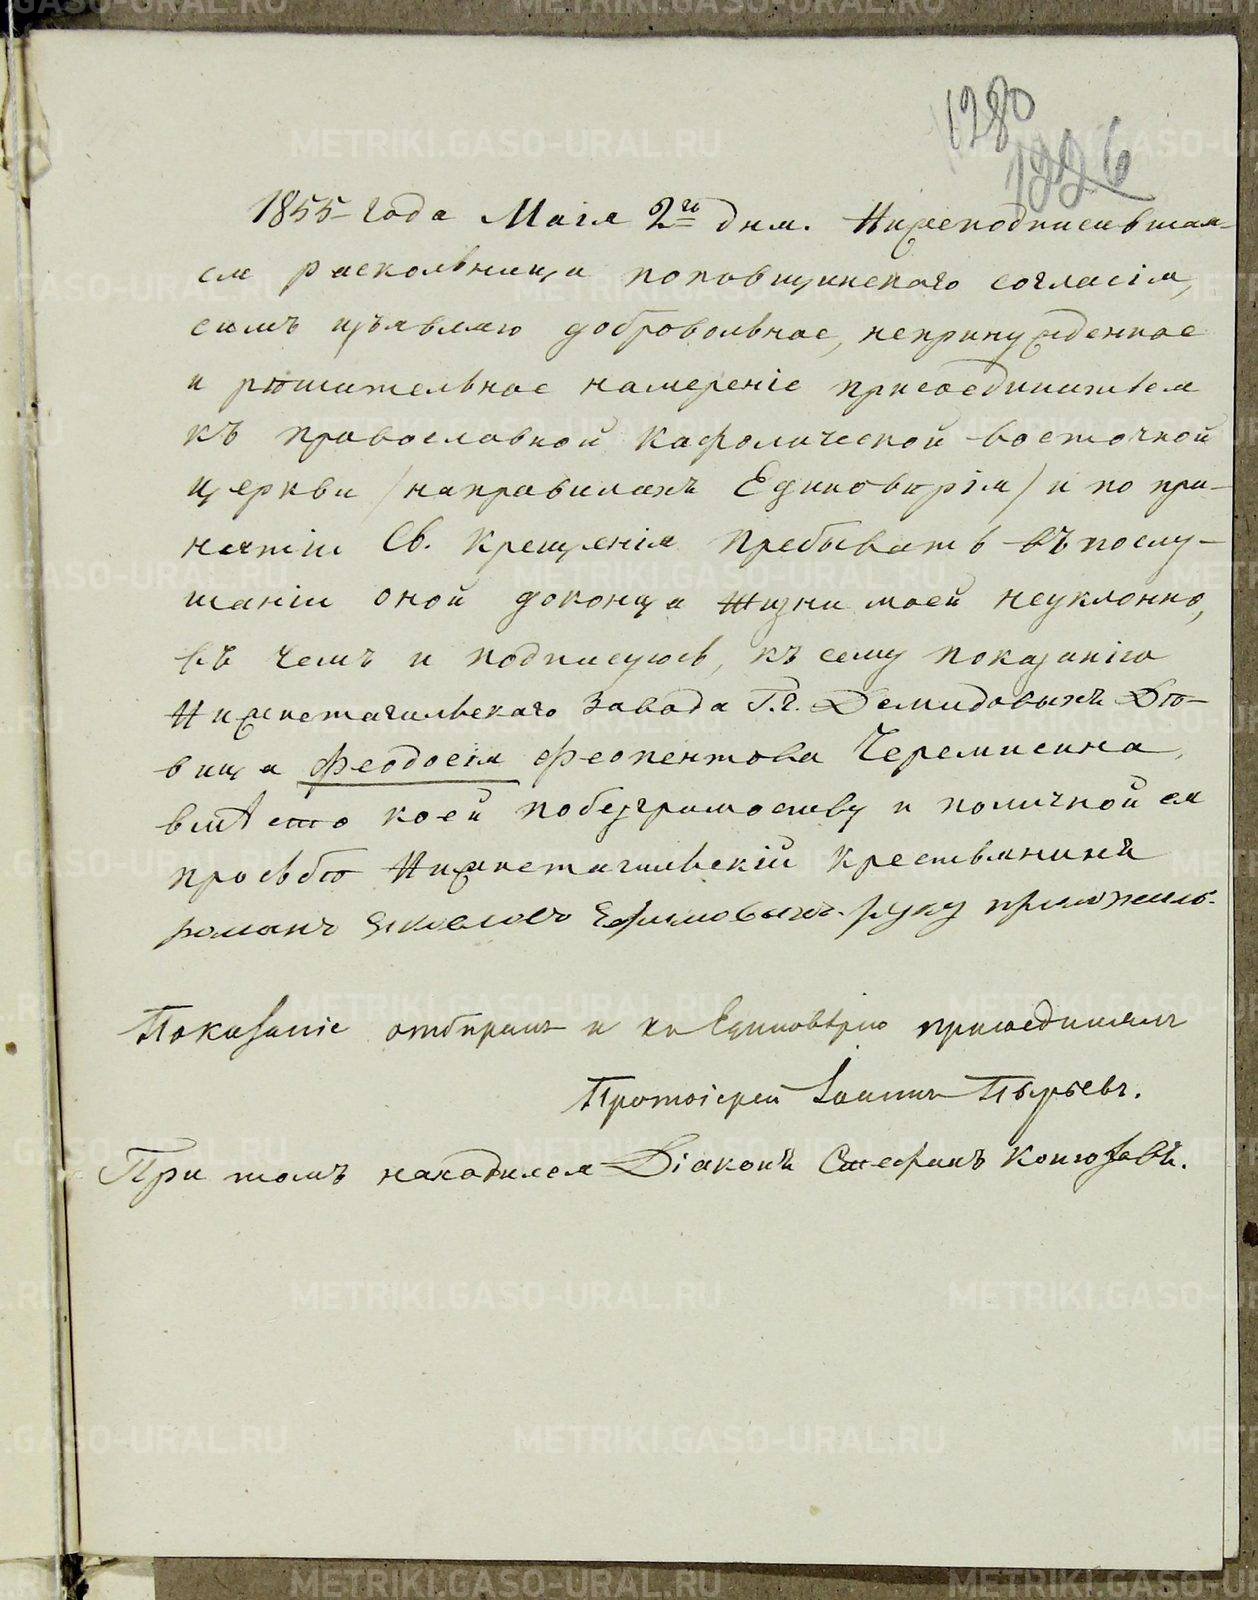 1280
1226
1855 года Маія 2го дня. Нижеподписавшая-
ся раскольница поповщинскаго согласія,
симъ изъявляю добровольное, непринужденное
и рѣшительное намереніе присоединиться
къ православной Кафолической восточной
церкви /на правилахъ Единовѣрія/ и по при-
нятіи Св. Крещенія пребывать въ послу-
шаніи оной до конца жизни моей неуклонно,
въ чемъ и подписуюсь, къ сему показанію
Нижнетагильскаго завода Г.г. Демидовыхъ Дѣ-
вица Феодосія Феопентова Черемисина,
вмѣсто коей по безграмотству и по личной ея
прозьбѣ Нижнетагильскій Крестьянинъ
романъ Яковлевъ Ефимовыхъ руку приложилъ.
Показаніе отбиралъ и къ Единовѣрію присоединялъ
Протоіерей Іоаннъ Пырьевъ.
При томъ находился Діаконъ Стефанъ
METRIKI.GASO-URAL.RU